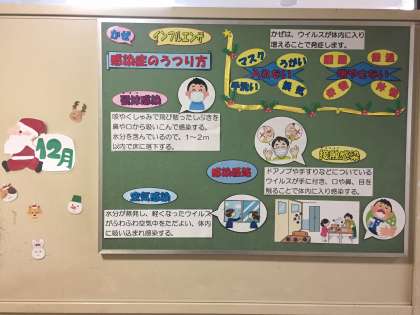 かぜ
インフルエンザ
感染症のうつり方
かぜは、ウイルスが体内に入り
増えることで発症します。
マスク
うがい
入れない
手洗い
換気
増やさない
飛沫感染
咳やくしゃみで飛び散ったしぶきを
鼻や口から吸いこんで感染する。
水分を含んでいるので、1～2m
以内で床に落下する。
接触感染
ドアノブや手すりなどについている
ウイルスが手に付き、口や鼻、目を
触ることで体内に入り感染する。
感染経路
空気感染
水分が蒸発し、軽くなったウイルス
がふわふわ空気中をただよい、体内
に吸い込まれ感染する。
12月